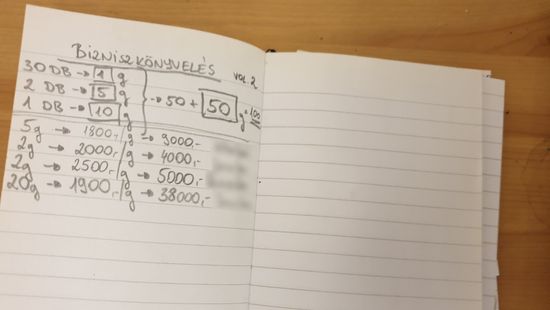 BIZNISZKÖNYVELÉS vol. 2
30 DB → 1 g
2 DB → 5 g → 50 + 50 g = 100
1 DB → 10 g
5g → 1800,-/g → 9000,-
2g → 2000,-/g → 4000,-
2g → 2500,-/g → 5000,-
20g → 1900,-/g → 38000,-